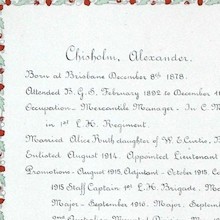 Chisholm, Alexander.
Born at Brisbane December 8th 1878.
Attended B.G.S. February 1892 to December
Occupation - Mercantile Manager - In C. M
in 1st L.H. Regiment.
Married Alice Ruth daughter of W. E. Curtis, B
Enlisted August 1914. Appointed Lieutenant
Promotions - August 1915, Adjutant - October 1915, Ca
1915 Staff Captain 1st L.H. Brigade, Ma
Major - September 1916, Major, Septem